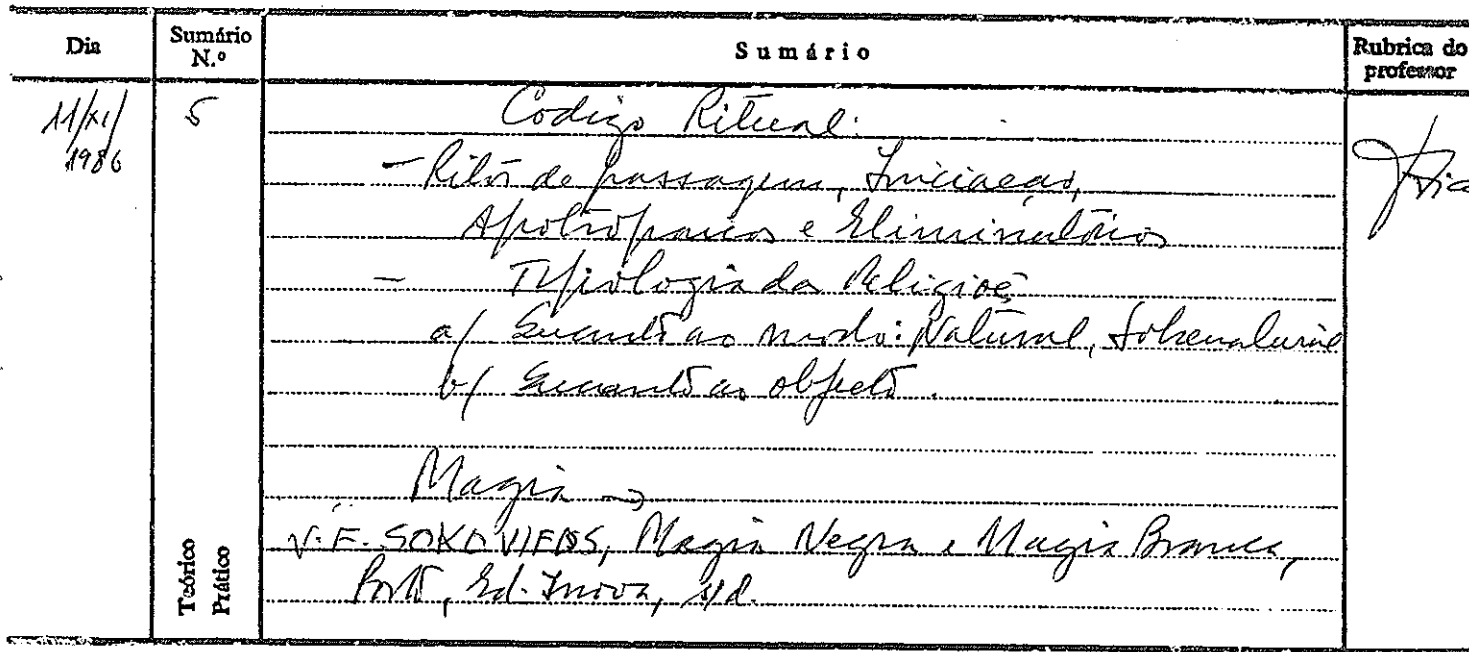 Dia Sumário N.º Sumário Rubrica do professor
11/XI/1986 5 Codigo Ritual:
- Ritos de passagem, Iniciação,
Apotropaicos e Eliminatórios
- Tipologia da Religião
a/ Quanto ao modo: Natural, Sobrenatural
b/ Quanto ao objecto.
Magia →
V. F. Magia Negra e Magia Branca,
Porto, Ed. Inova, s/d.
Teórico
Prático